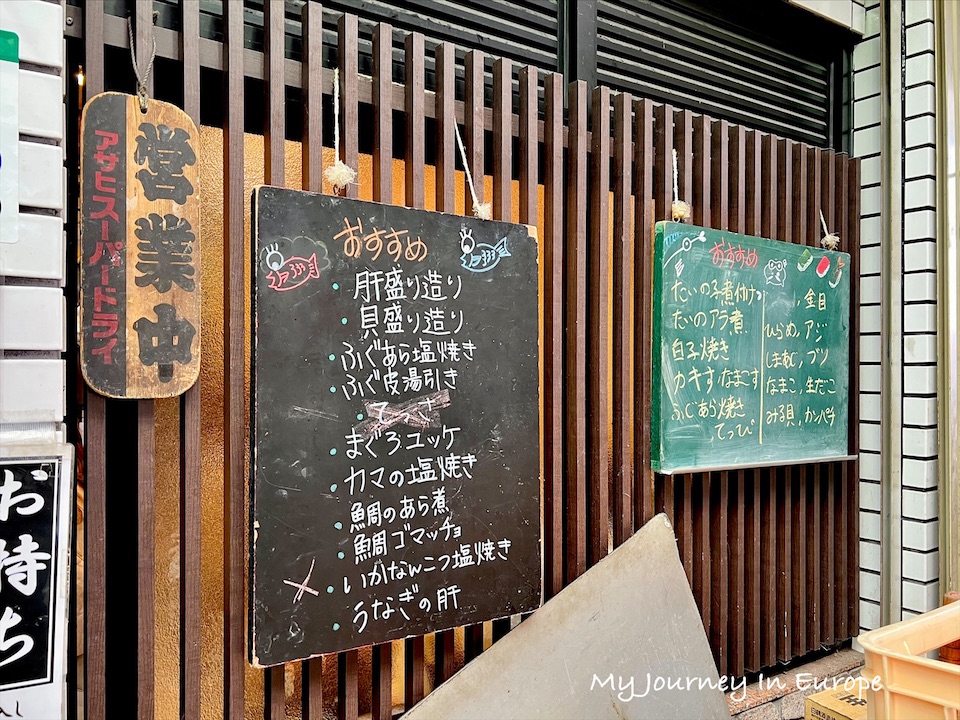 営業中
アサヒスーパードライ
お持ち
おすすめ
肝盛り造り
貝盛り造り
ふぐあら塩焼き
ふぐ皮湯引き
まぐろユッケ
カマの塩焼き
鯛のあら煮
鯛ゴマッチョ
いかなんこつ塩焼き
うなぎの肝
おすすめ
たいの子煮付け
たいのアラ煮
白子焼き
カキす,なまこす
ふぐあら焼き
,てっぴ
,金目
ひらめ,アジ
しまあじ,ブリ
なまこ,生だこ
みる貝,カンパチ
My Journey In Europe